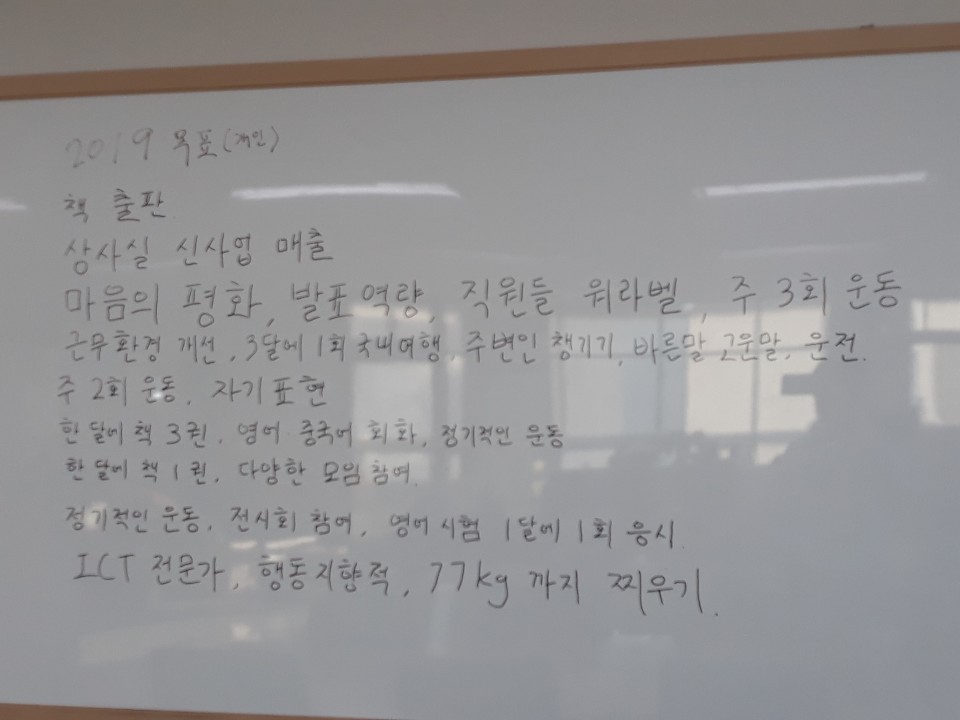 2019 목표(개인)
책 출판
상사실 신사업 매출
마음의 평화, 발표역량, 직원들 워라벨, 주 3회 운동
근무환경 개선, 3달에 1회 국내여행, 주변인 챙기기, 바른말 고운말, 운전.
주 2회 운동, 자기표현
한 달에 책 3권, 영어 중국어 회화, 정기적인 운동
한 달에 책 1권, 다양한 모임 참여.
정기적인 운동, 전시회 참여, 영어시험 1달에 1회 응시
ICT 전문가, 행동지향적, 77kg 까지 찌우기.